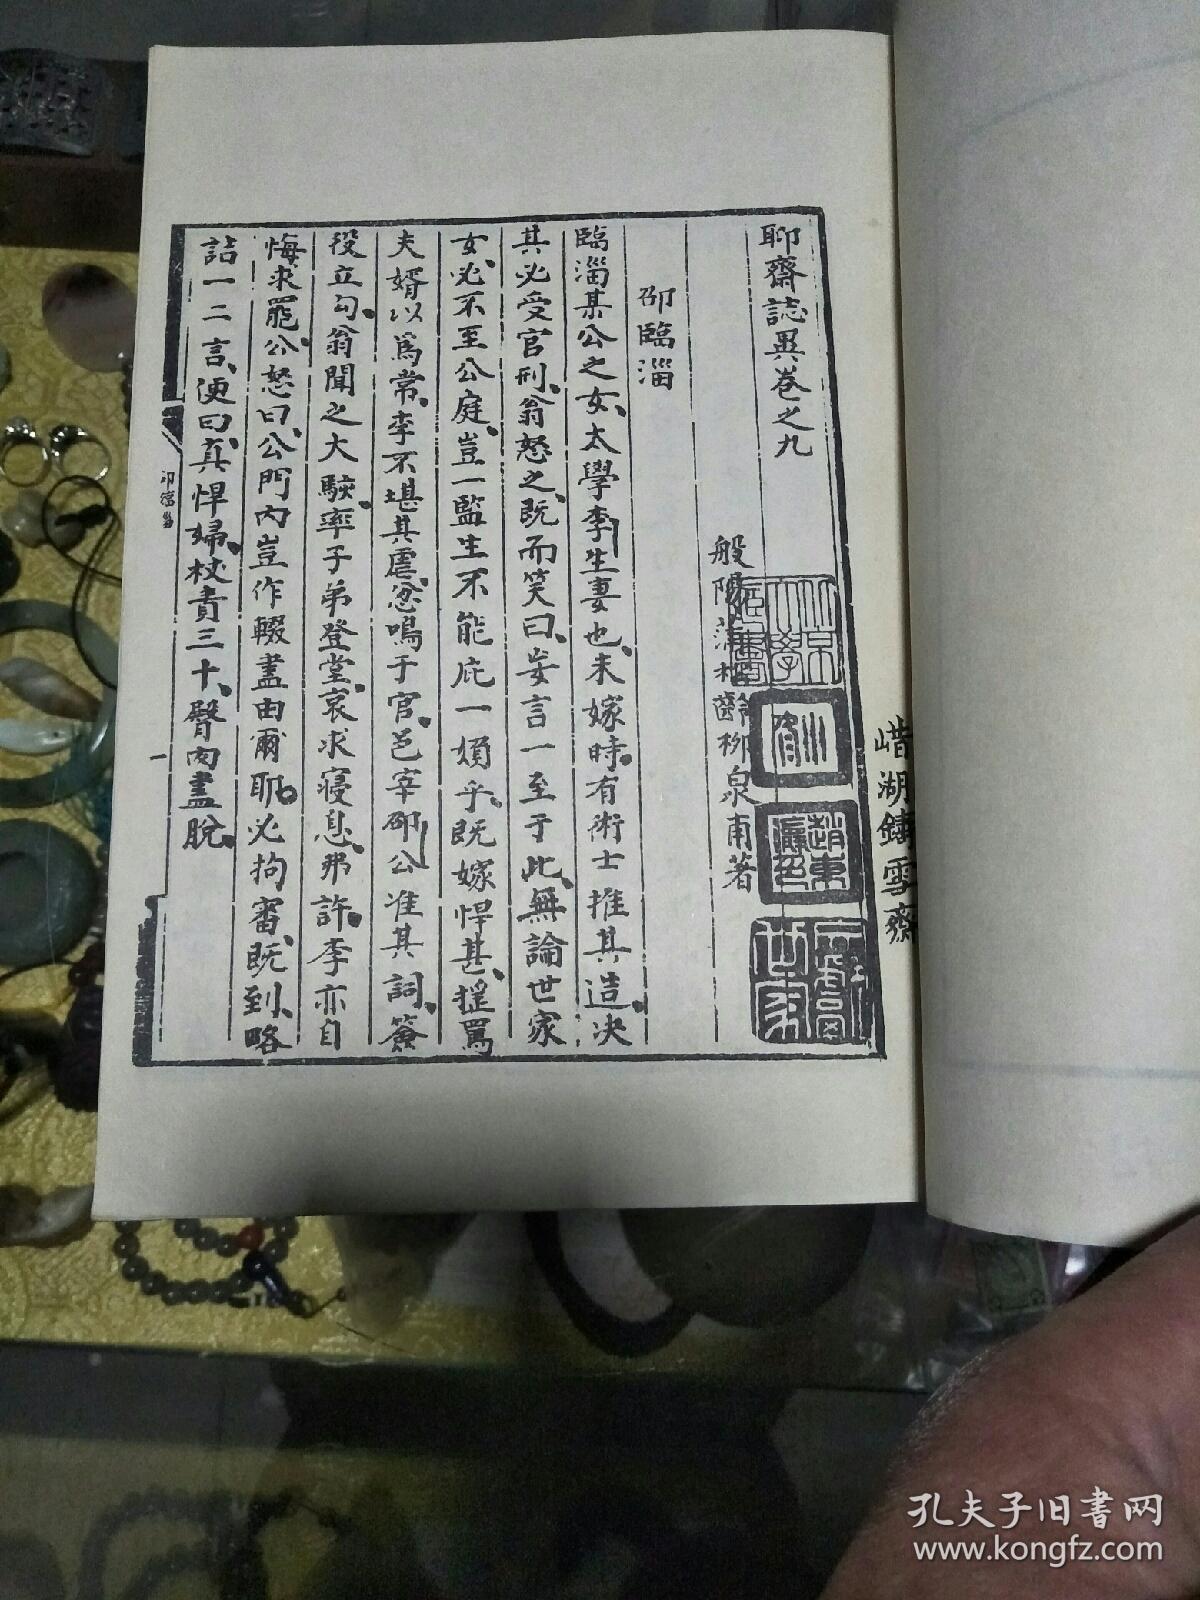 聊齋誌異卷之九
般陽蒲松齡柳泉甫著
邵臨淄
臨淄某公之女、太學李生妻也、未嫁時、有術士推其造、决
其必受官刑、翁怒之、既而笑曰、妄言一至于此、無論世家
女、必不至公庭、豈一監生不能庇一婦乎、既嫁悍甚、揘罵
夫婿以爲常、李不堪其虐、忿鳴于官、邑宰邵公准其詞、簽
役立勾、翁聞之大駭、率子弟登堂、哀求寢息、弗許、李亦自
悔求罷、公怒曰、公門內豈作輟盡由爾耶、必拘審、既到、略
詰一二言、便曰、真悍婦、杖責三十、臀肉盡脫、
邵臨淄
一
嵴湖鑄雪齋
趙東
孔夫子旧书网
www.kongfz.com